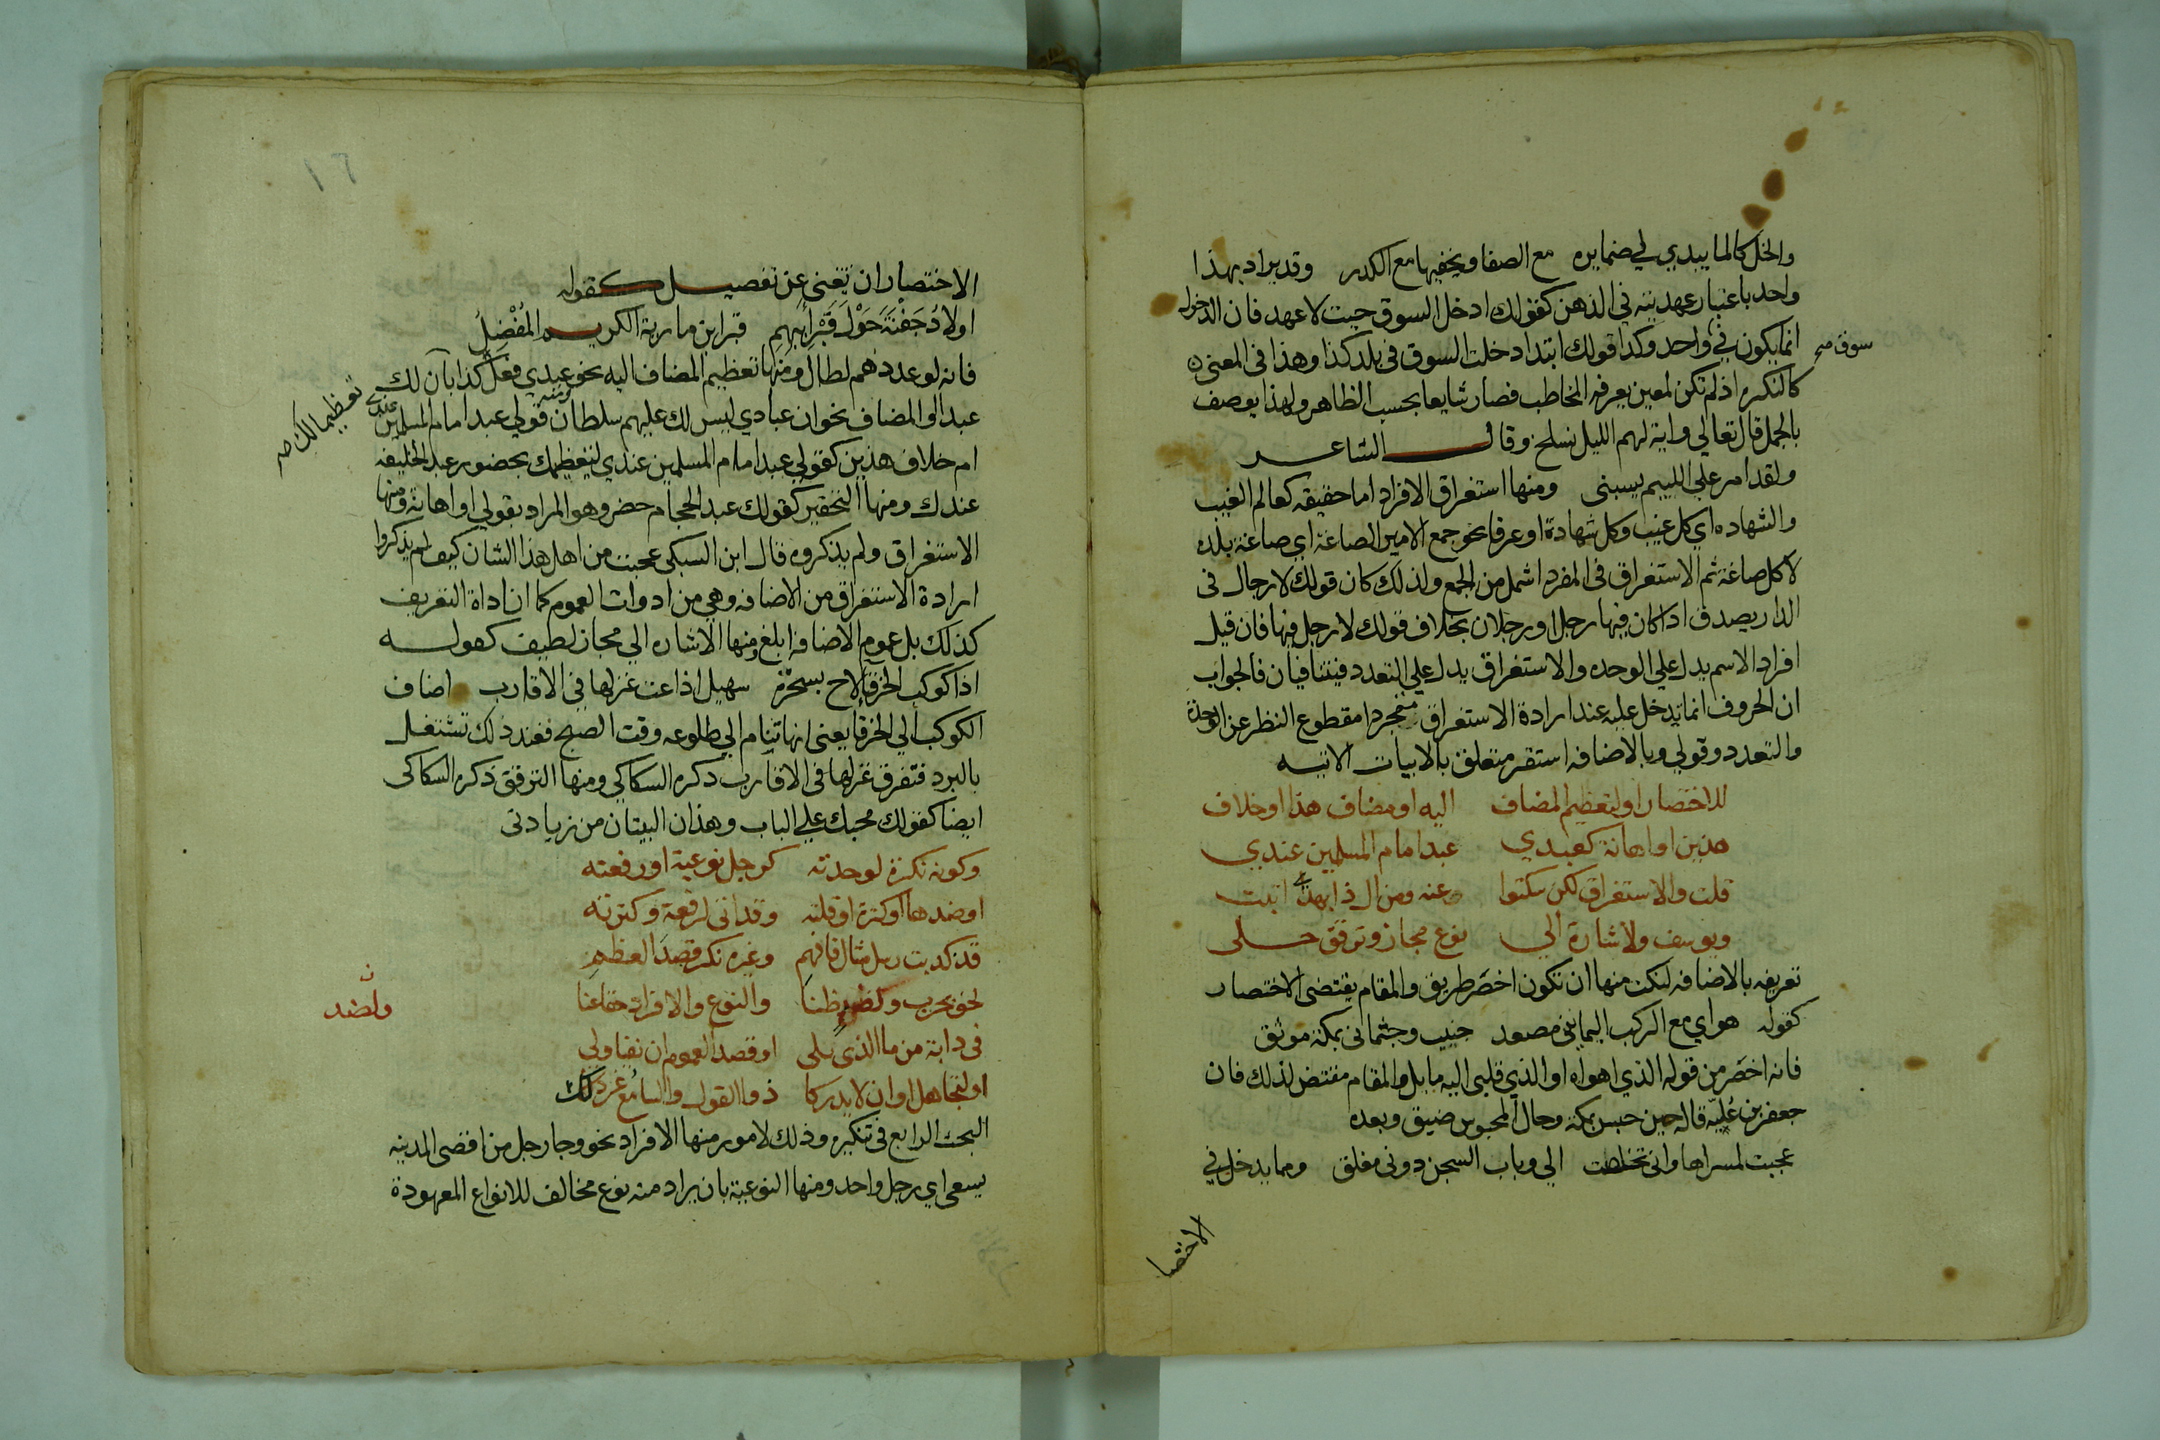 والخل كالما يبدي لي ضمايره مع الصفا ويخفيها مع الكدر وقد يراد بهذا
واحد باعتبار عهديته في الذهن كقولك ادخل السوق حيث لا عهد فان الدخول
انما يكون في واحد وكذا قولك ابتدا دخلت السوق في بلد كذا وهذا في المعنى
سوق صح
كالنكره اذ لم تكن لمعين يعرفه المخاطب فصار شايعا بحسب الظاهر ولهذا يوصف
بالجمل قال تعالي واية لهم الليل نسلخ وقال الشاعر
ولقد امر علي اللييم يسبني ومنها استغراق الافراد اما حقيقه كعالم الغيب
والشهاده اي كل غيب وكل شهادة او عرفا نحو جمع الامير الصاغة اي صاغة بلده
لا كل صاغة ثم الاستغراق في المفرد اشمل من الجمع ولذلك كان قولك لا رجال في
الدار يصدق اذا كان فيها رجل او رجلان بخلاف قولك لا رجل فيها فان قيل
افراد الاسم يدل علي الوحده والاستغراق يدل علي التعدد فيتنافيان فالجواب
ان الحروف انما تدخل عليه عند ارادة الاستغراق مجردا مقطوع النظر عن الوحدة
والتعدد وقولي وبالاضافه استقر متعلق بالابيات الاتيه
للاختصار او لتعظيم المضاف اليه او مضاف هذا او خلاف
هذين او اهانة كعبدي عبد امام المسلمين عندي
قلت والاستغراق لكن سكتوا عنه ومن ال ذا بهذي اثبت
ويوسف ولاشارة الي نوع مجاز وترقق حلى
تعريفه بالاضافه لنكت منها ان تكون اخصر طريق والمقام يقتضي الاختصار
كقوله هواي مع الركب اليمانين مصعد جنيب وجثماني بمكة موثق
فانه اخصر من قوله الذي اهواه او الذي قلبي اليه مايل والمقام مقتض لذلك فان
جعفر بن علبة قاله حين حبس بمكة وحال المحبوس ضيق وبعده
عجبت لمسراها واني تخلصت الي وباب السجن دوني مغلق ومما يدخل في
الاختصا
١٦
الاختصار ان تغني عن تفصيل كقوله
اولاد جفنة حول قبر ابيهم قبر ابن مارية الكريم المفضل
فانه لو عددهم لطال ومنها تعظيم المضاف اليه نحو عبدي فعل كذا بان لك
تعظيما لك صح
عبدا او المضاف نحو ان عبادي ليس لك عليهم سلطان ومنه قولي عبد امام المسلمين عندي
ام خلاف هذين كقولي عبد امام المسلمين عندي لتعظيمك بحضور عبد الخليفه
عندك ومنها التحقير كقولك عبد الحجام حضر وهو المراد بقولي او اهانة ومنها
الاستغراق ولم يذكروه قال ابن السبكي عجبت من اهل هذا الشان كيف لم يذكروا
ارادة الاستغراق من الاضافه وهي من ادوات العموم كما ان اداة التعريف
كذلك بل عموم الاضافة ابلغ ومنها الاشاره الي مجاز لطيف كقوله
اذا كوكب الخرقا لاح بسحرة سهيل اذاعت غزلها في الاقارب اضاف
الكوكب الي الخرقا يعني انها تنام الي طلوعه وقت الصبح فعند ذلك تشتغل
بالبرد فتفرق غزلها في الاقارب ذكره السكاكي ومنها الترقق ذكره السكاكي
ايضا كقولك محبك علي الباب وهذان البيتان من زيادتي
وكونه نكرة لوحدته كرجل نوعية او رفعته
او ضدها او كثرة او قلته وقد اتى لرفعة وكثرته
قد كذبت رسل مثال فافهم وغيره نكر قصد العظم
نحو بحرب ولضد ظنا والنوع والافراد حقا عنا
ولضد
في دابة من ما الذي تلي او قصد العموم ان نفيا ولي
او لتجاهل او ان لا يدركا ذو القول والسامع غير ذلك
البحث الرابع في تنكيره وذلك لامور منها الافراد نحو وجا رجل من اقصى المدينه
يسعى اي رجل واحد ومنها النوعية بان يراد منه نوع مخالف للانواع المعهودة